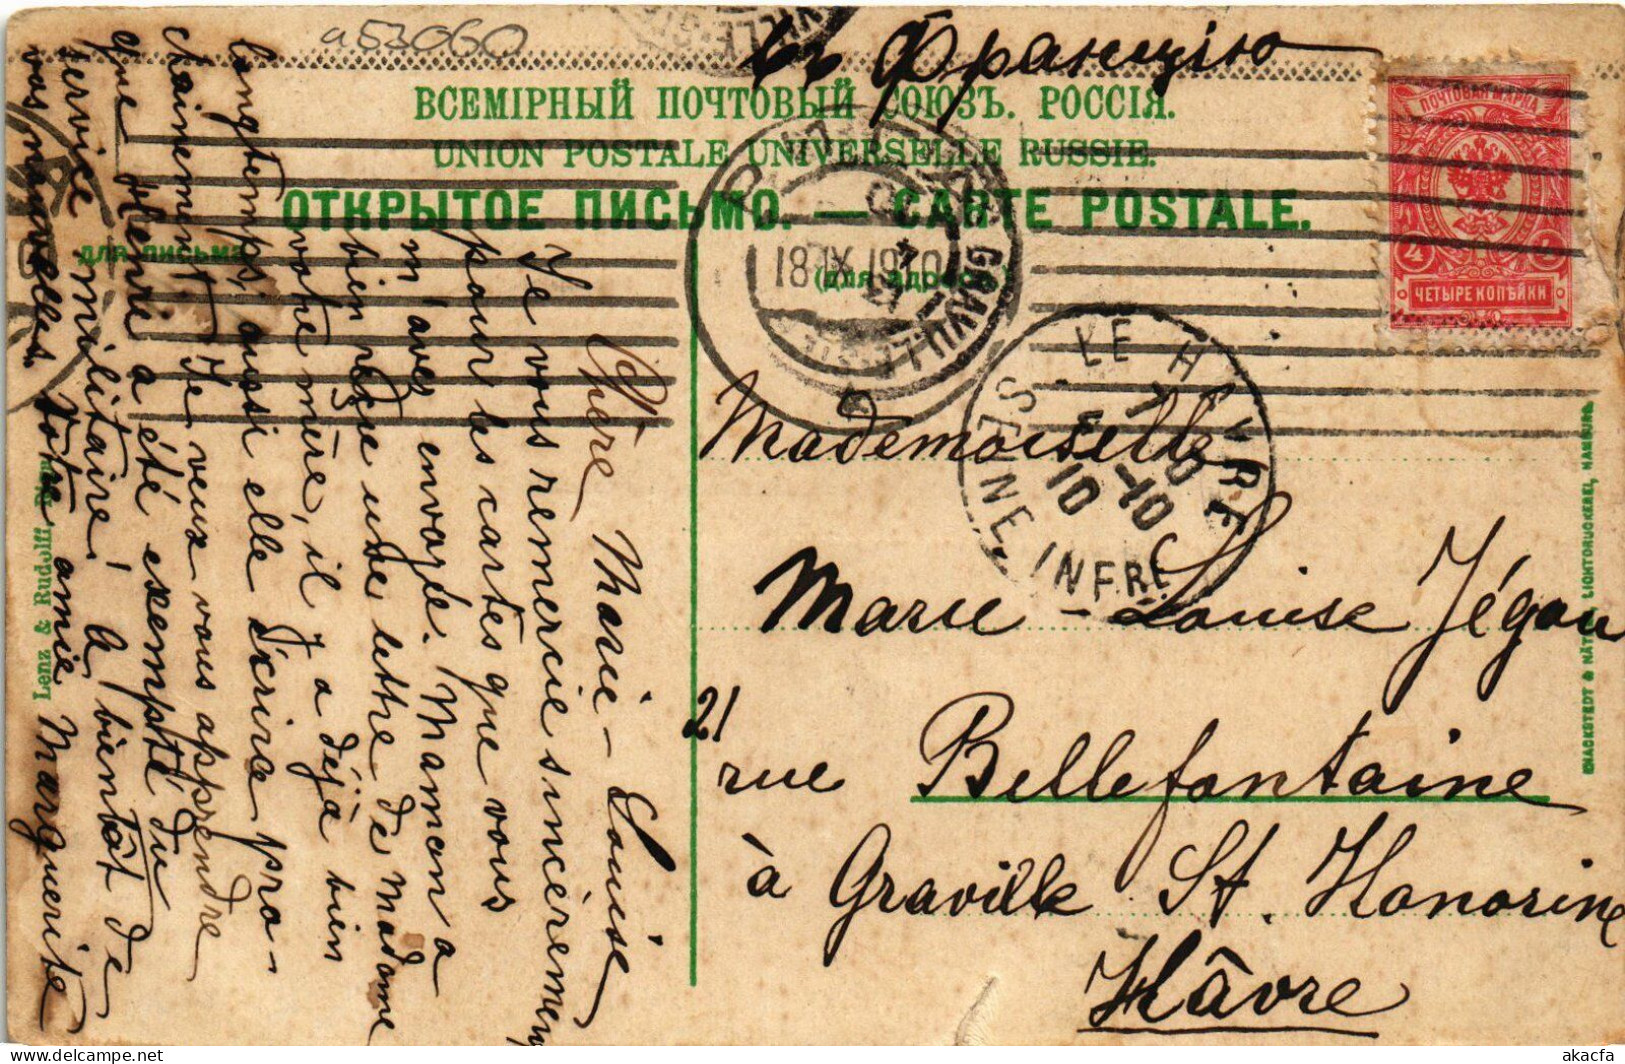 a53060
Въ Францію
ВСЕМІРНЫЙ ПОЧТОВЫЙ СОЮЗЪ. РОССІЯ.
UNION POSTALE UNIVERSELLE RUSSIE.
ОТКРЫТОЕ ПИСЬМО. — CARTE POSTALE.
для письма
(для адреса)
ПОЧТОВАЯ МАРКА
4 4
ЧЕТЫРЕ КОПѢЙКИ
GRAVILLE-STE
LE HAVRE
SEINE INFRE
7 -10
10
Chère Marie-Louise
Je vous remercie sincèrement
pour les cartes que vous
m'avez envoyé. Maman a
bien reçu une lettre de Madame
votre mère, il y a déjà bien
longtemps, aussi elle écrira pro-
chainement. Je veux vous apprendre
que Henri a été exempté du
service militaire! A bientôt de
vos nouvelles. Votre amie Marguerite
Mademoiselle
Marie-Louise Jégou
21
rue Bellefontaine
à Graville St. Honorine
Hâvre
Lenz & Rudolff, Riga
KNACKSTEDT & NÄTHER, LICHTDRUCKEREI, HAMBURG.
akacfa